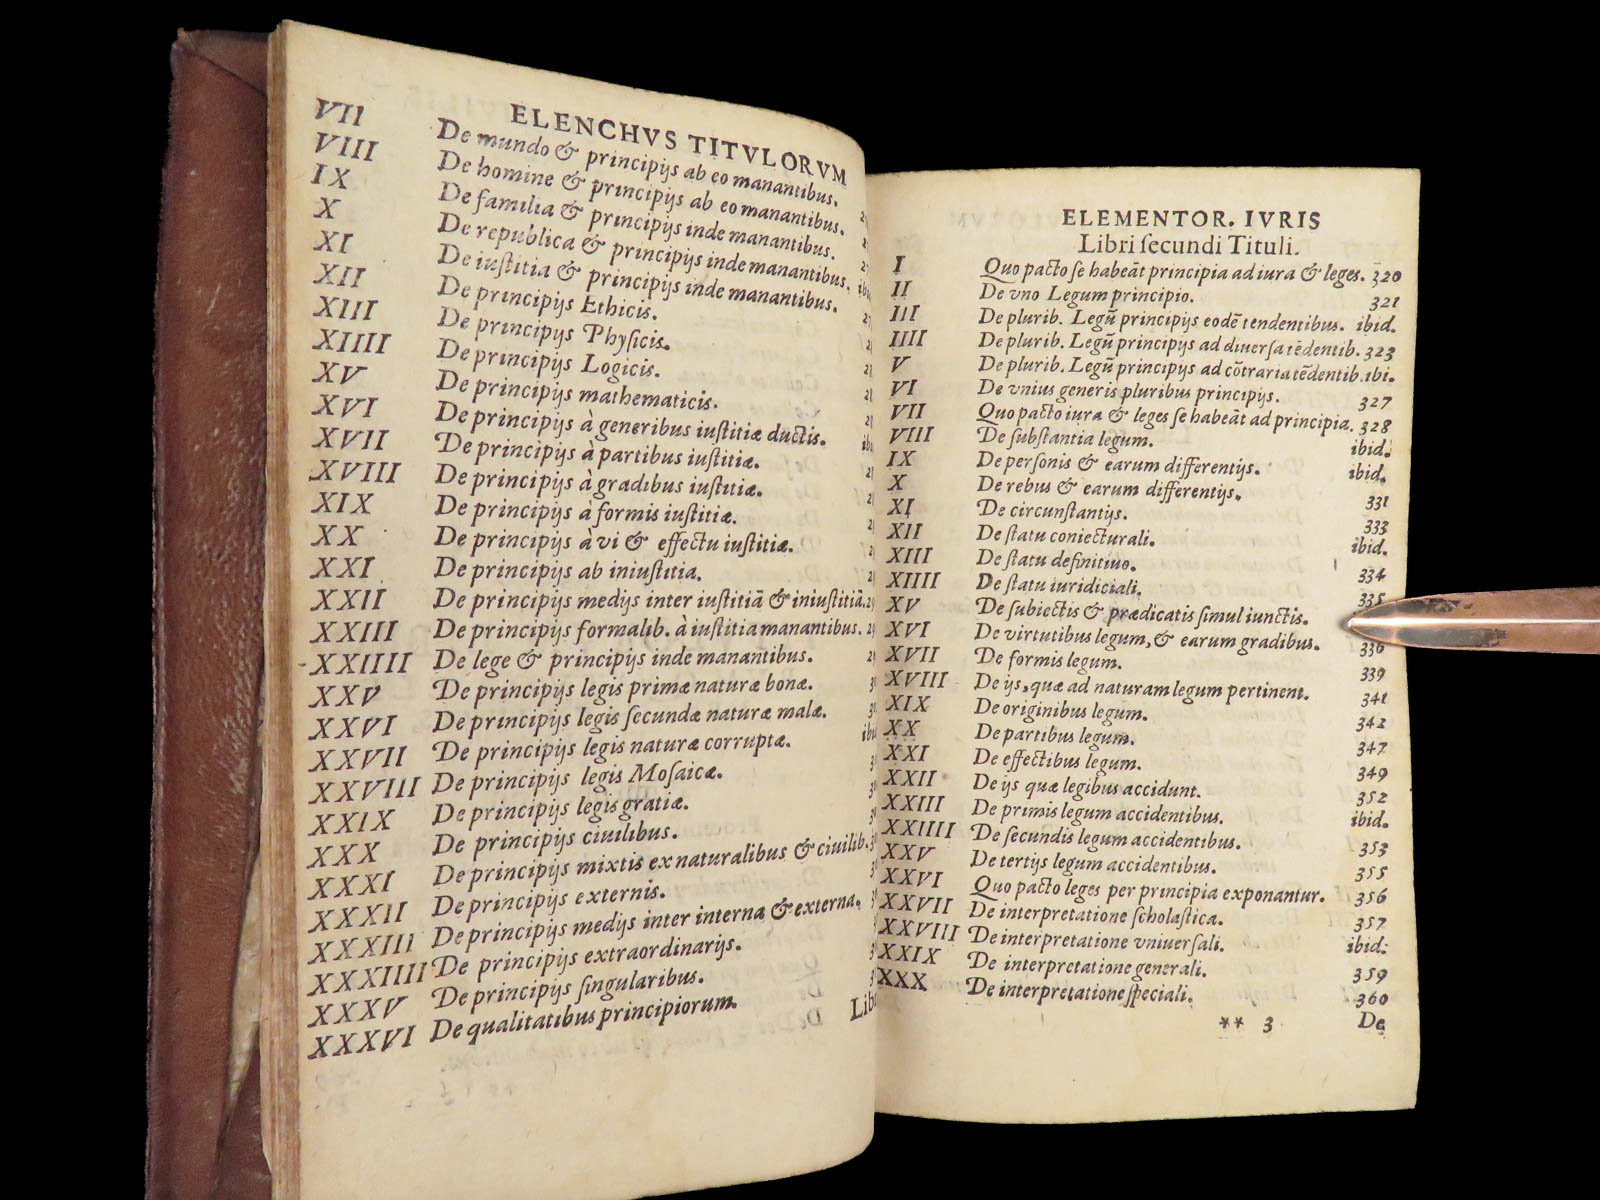 ELENCHVS TITVLORVM
VII De mundo & principijs ab eo manantibus.
VIII De homine & principijs ab eo manantibus.
IX De familia & principijs inde manantibus.
X De republica & principijs inde manantibus.
XI De iuſtitia & principijs inde manantibus.
XII De principijs Ethicis.
XIII De principijs Phyſicis.
XIIII De principijs Logicis.
XV De principijs mathematicis.
XVI De principijs à generibus iuſtitiæ ductis.
XVII De principijs à partibus iuſtitiæ.
XVIII De principijs à gradibus iuſtitiæ.
XIX De principijs à formis iuſtitiæ.
XX De principijs à vi & effectu iuſtitiæ.
XXI De principijs ab iniuſtitia.
XXII De principijs medijs inter iuſtitiā & iniuſtitiā.
XXIII De principijs formalib. à iuſtitia manantibus.
XXIIII De lege & principijs inde manantibus.
XXV De principijs legis primæ naturæ bonæ.
XXVI De principijs legis ſecundæ naturæ malæ.
XXVII De principijs legis naturæ corruptæ.
XXVIII De principijs legis Moſaicæ.
XXIX De principijs legis gratiæ.
XXX De principijs ciuilibus.
XXXI De principijs mixtis ex naturalibus & ciuilib.
XXXII De principijs externis.
XXXIII De principijs medijs inter interna & externa.
XXXIIII De principijs extraordinarijs.
XXXV De principijs ſingularibus.
XXXVI De qualitatibus principiorum.
ELEMENTOR. IVRIS
Libri ſecundi Tituli.
I Quo pacto ſe habeāt principia ad iura & leges. 320
II De vno Legum principio. 321
III De plurib. Legū principijs eodē tendentibus. ibid.
IIII De plurib. Legū principijs ad diuerſa tēdentib. 323
V De plurib. Legū principijs ad cōtraria tēdentib. ibi.
VI De vnius generis pluribus principijs. 327
VII Quo pacto iura & leges ſe habeāt ad principia. 328
VIII De ſubſtantia legum. ibid.
IX De perſonis & earum differentijs. ibid.
X De rebus & earum differentijs. 331
XI De circunſtantijs. 333
XII De ſtatu coniecturali. ibid.
XIII De ſtatu definitiuo. 334
XIIII De ſtatu iuridiciali. 335
XV De ſubiectis & prædicatis ſimul iunctis.
XVI De virtutibus legum, & earum gradibus. 336
XVII De formis legum. 339
XVIII De ijs, quæ ad naturam legum pertinent. 341
XIX De originibus legum. 342
XX De partibus legum. 347
XXI De effectibus legum. 349
XXII De ijs quæ legibus accidunt. 352
XXIII De primis legum accidentibus. ibid.
XXIIII De ſecundis legum accidentibus. 353
XXV De tertijs legum accidentibus. 355
XXVI Quo pacto leges per principia exponantur. 356
XXVII De interpretatione ſcholaſtica. 357
XXVIII De interpretatione vniuerſali. ibid.
XXIX De interpretatione generali. 359
XXX De interpretatione ſpeciali. 360
** 3 De